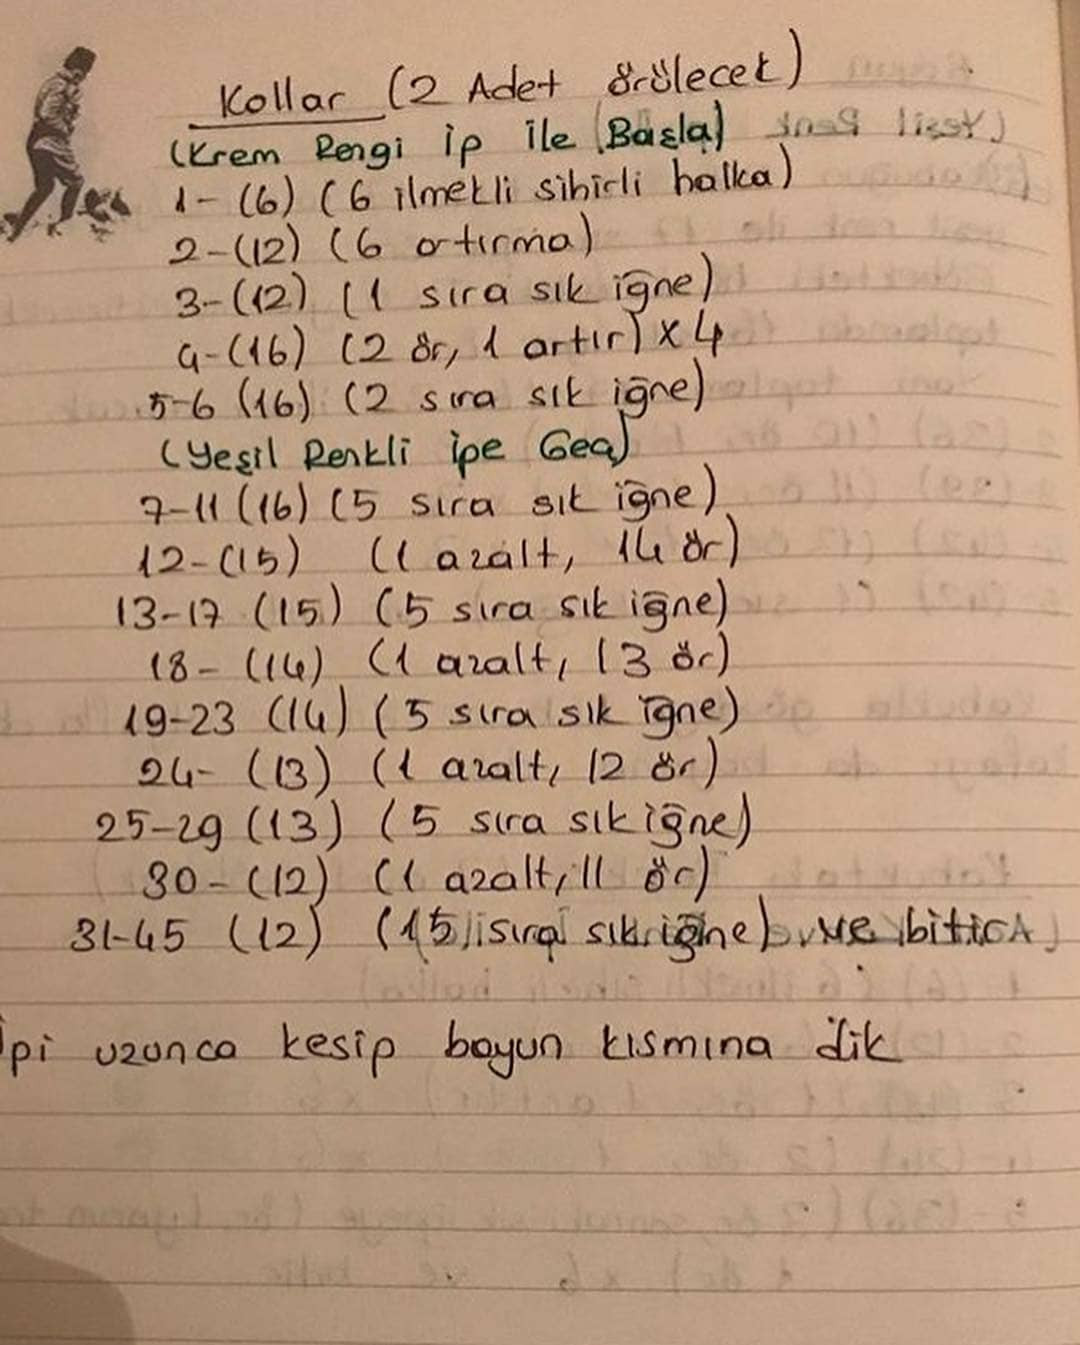 Kollar (2 Adet örülecek)
(Krem Rengi İp İle Başla)
1- (6) (6 ilmekli sihirli halka)
2-(12) (6 artırma)
3-(12) (1 sıra sık iğne)
4-(16) (2 ör, 1 artır) x 4
5-6 (16) (2 sıra sık iğne)
(Yeşil Renkli İpe Geç)
7-11 (16) (5 sıra sık iğne)
12-(15) (1 azalt, 14 ör)
13-17 (15) (5 sıra sık iğne)
18- (14) (1 azalt, 13 ör)
19-23 (14) (5 sıra sık iğne)
24- (13) (1 azalt, 12 ör)
25-29 (13) (5 sıra sık iğne)
30- (12) (1 azalt, 11 ör)
31-45 (12) (15 sıra sık iğne) ve bitir
İpi uzunca kesip boyun kısmına dik